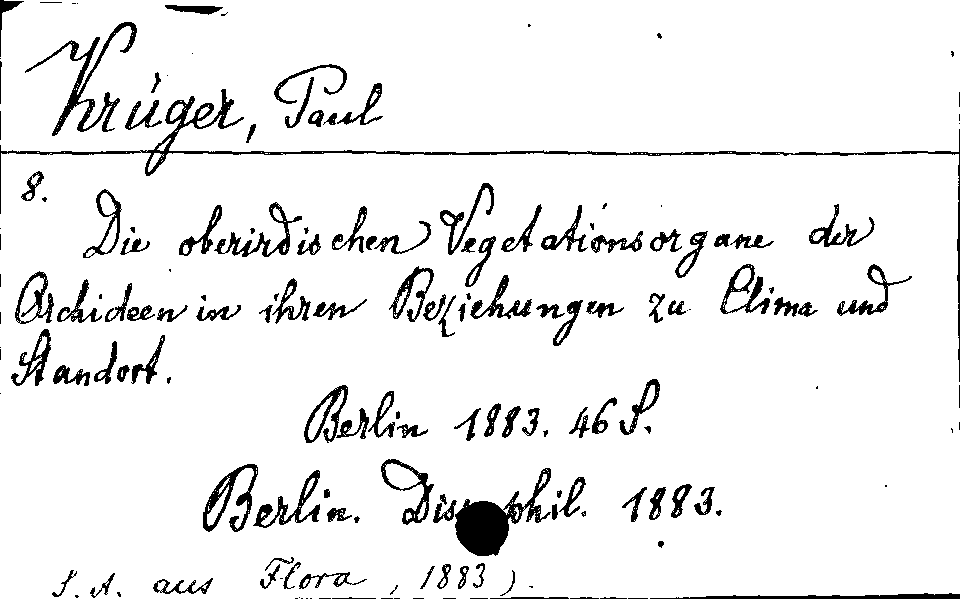 Krüger, Paul
8.
Die oberirdischen Vegetationsorgane der
Orchideen in ihren Beziehungen zu Clima und
Standort.
Berlin 1883. 46 S.
Berlin. Diss. phil. 1883.
S. A. aus Flora, 1883).